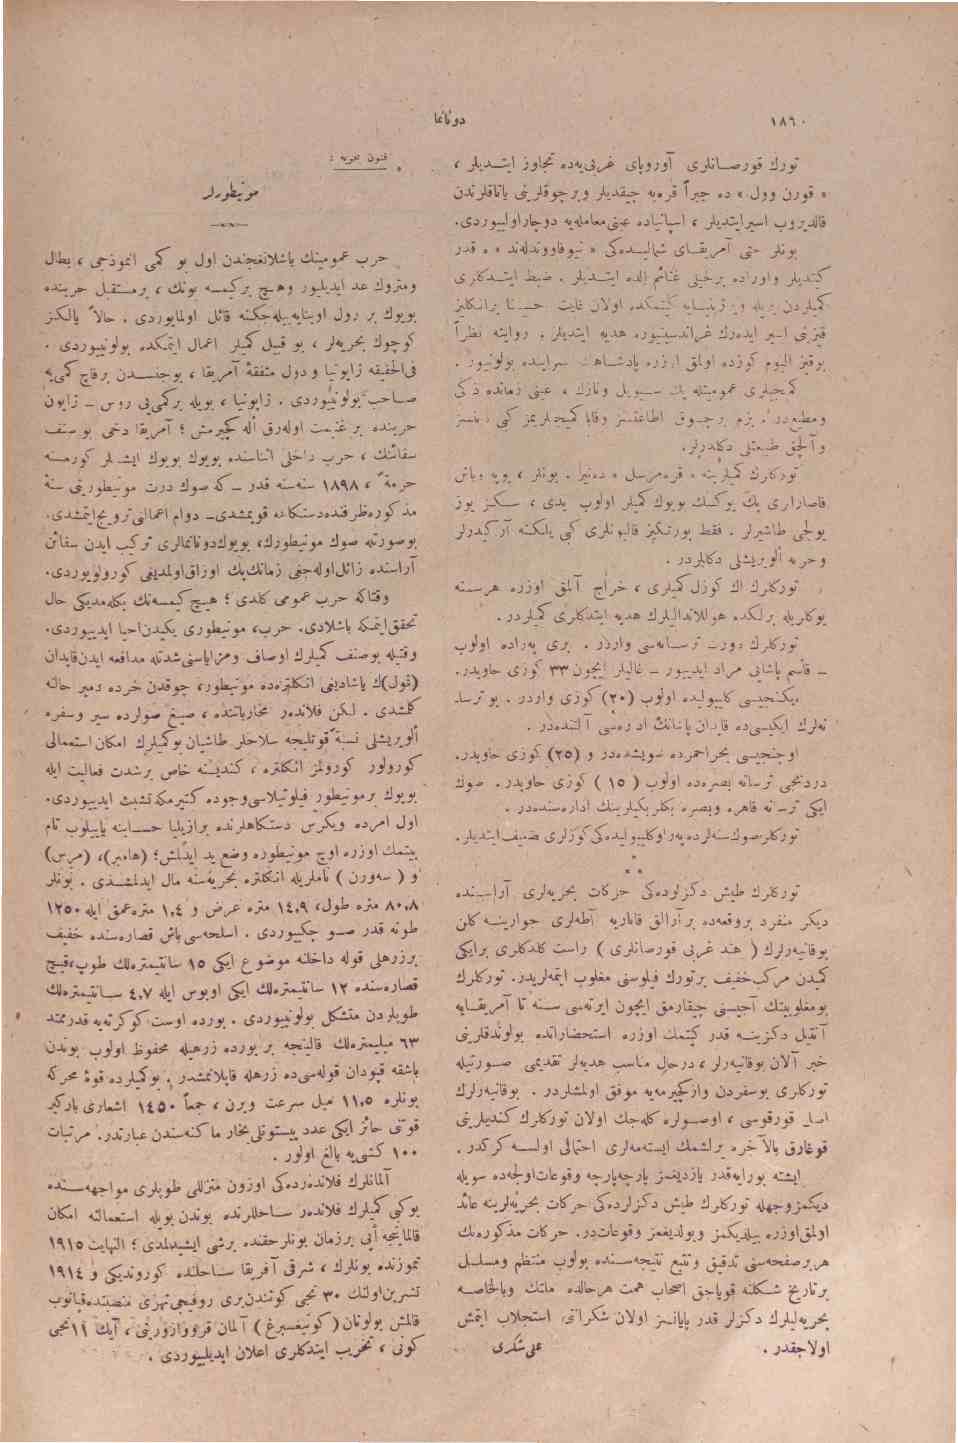 ١٨٦٠
دونانما
تورك قورصانلری آوروپای غربی‌یه‌ده تجاوز ایتدیلر ،
« قورن وول » ده جبراً قره‌یه چیقدیلر و بر چوقلرینی یاتاقلرندن
قالدیروب اسیر ایتدیلر ، اسپانیاده عینی معامله‌یه دوچار اولییوردی.
بونلر حتی آمریقای شمالیده‌کی « نیوفاووندلاند » ه قدر
کیتدیلر واوراده برخیلی غنائم الده ایتدیلر . ضبط ایتدکلری
کمیلردن بریله
قیزینی اسیر ایده‌رك غراندسینیوره هدیه ایتدیلر . روایته نظراً
بوقیز الیوم کوزده اولمق اوزره پادشاهك سراینده بولونیور .
کمیجیلری عمومیتله پك سویل ونازك ، عینی زمانده ذکی
ومطیعدر . بزم برچوق اطاعتسز وقابا کمیجیلریمز کبی
وآلچق طبیعتلی دکلدرلر.
تورکلرك کمیلرینه « قره‌مرسل » ده‌نیر. بونلر ، پوپه وباش
قاصارالری پك یوکسك بویوك کمیلر اولوب یدی ، سکز یوز
یولجی طاشیرلر . فقط بورتکیز قالیونلری کبی یلکنه آز کیدرلر
وحربه ألویریشلی دکلدر.
تورکلرك اك کوزل کمیلری ، خراج آلمق اوزره هرسنه
بوکلریله برلکده هوللاندالیلرك هدیه ایتدکلری کمیلردر .
تورکلرك دورت ترسانه‌سی واردر . بری په‌راده اولوب
– قاسم پاشایی مراد ایدییور – غالیلر ایچون ٣٣ کوزی حاویدر.
ایکنجیسی کلیبولیده اولوب (٢٠) کوزی واردر . بو ترسا-
نه‌لرك ایکیسی‌ده قاپدان پاشانك اداره‌سی آلتنده‌در .
اوچنجیسی بحراحمرده سویشده‌در و (٢٥) کوزی حاویدر.
دردنجی ترسانه بصره‌ده اولوب ( ١٥ ) کوزی حاویدر . صوك
ایکی ترسانه قاهره وبصره بکلربکیلرینك اداره‌سنده‌در .
تورکلر صوك سنه‌لرده په‌را وکلیبولیده‌کی کوزلری تضعیف ایتدیلر.
* *
*
تورکلرك طیش دکزلرده‌کی حرکات بحریه‌لری آراسنده
دیکر منفرد بروقعه‌ده بر آرالق قاناریه آطه‌لری جوارینه کلن
بوقانیه‌رلرك ( هند غربی قورصانلری ) راست کلدکلری برایکی
کمیدن مرکب خفیف برتورك فیلوسنی مغلوب ایتمه‌لریدر. تورکلرك
بومغلوبیتك آجیسنی چیقارمق ایچون ایرته‌سی سنه تا آمریقایه
آنتیل دکزینه قدر کیتمك اوزره استحضاراتده بولوندقلرینی
خبر آلان بوقانیه‌رلر ، درحال مناسب هدیه‌لر تقدیمی صورتیله
تورکلری بوسفردن وازکچیرمه‌یه موفق اولمشلردر . بوقانیه‌رلرك
اصل قورقوسی ، اوصولره کله‌جك اولان تورکلرك کندیلرینی
قوغارق بالآخره یرلشمك ایسته‌مه‌لری احتمالی اولسه کرکدر .
ایشته بورایه‌قدر یازدیغمز پارچه‌پارچه وقوعات اولجه‌ده سویله
دیکمزوجهله تورکلرك طیش دکزلرده‌کی حرکات بحریه‌لرینه عائد
اولمق‌اوزره بیلدیکمز وبولدیغمز وقوعاتدر. حرکات مذکوره‌نك
هربرصفحه‌سی تدقیق وتتبع نتیجه‌سنده بولوب منتظم ومسلسل
برتاریخ شکلنه قویاجق اصحاب همت هرحالده ملتك وبالخاصه
بحریه‌لیلرك دکزلر قدر پایانسز اولان شکرانی استجلاب ایتمش
اولاجقدر .
علی شکری
فنون بحریه :
مونیطورلر
حرب عمومینك باشلانغجندن اول بو کمی انموذجی ، بطال
ومتروك عد ایدیلیور وهیچ برکیمسه بونك ، برمستقبل حربنده
بویوك بر رول اوینایه‌بیله‌جکنه قائل اولمایوردی . حالا یالکز
کوچوك بحریه‌لر ، بو قبیل کمیلر اعمال ایتمکده بولونییوردی .
فی‌الحقیقه ژاپونیا و دول متفقۀ آمریقا ، بوجنسدن برقاچ کمی‌یه
صاحب بولونییوردی . ژاپونیا ، بویله برکمی‌یی روس – ژاپون
حربنده بر غنیمت اوله‌رق أله کچیرمش ؛ آمریقا دخی بوصنف
سفائنك ، حرب داخلی اثناسنده بویوك بویوك ایشلر کورمسنه
حرمةً ، ١٨٩٨ سنه‌سنه قدر – که صوك درت مونیطورینی سنۀ
مذکوره‌ظرفنده‌دستکاهه قویمشدی– دوام اعمالنی ترویج ایتمشدی.
بوصورتله صوك مونیطورك، بویوك‌دونانمالری ترکیب ایدن سفائن
آراسنده زائل‌اوله‌جغی زمانك‌پك اوزاق‌اولمدیغی کورولویوردی.
وقتاکه حرب عمومی کلدی ؛ هیچ کیمسه‌نك بکله‌مدیکی حال
تحقق‌ایتمکه باشلادی. حرب، مونیطوری یکیدن‌احیا ایدییوردی.
وقتیله بوصنف کمیلرك اوصاف ومزایاسنی شدتله مدافعه ایدن‌قاپدان
(قول)ك یاشادیغی انکلتره‌ده مونیطور، چوقدن خرده دمیر حالنه
کلمشدی . لکن فلاندر محارباتنده ، صیغ صولرده سیر وسفره
ألویریشلی نسبةً قوتلیجه سلاحلر طاشیان بوکمیلرك امکان استعمالی
کورولور کورولمز انکلتره ، کندیسنه خاص برشدت فعالیت ایله
بویوك برمونیطور فیلوتیلاسی وجوده کتیرمکه تشبث ایدییوردی.
اول امرده ویکرس دستکاهلرنده برازیلیا حسابنه یاپیلوب تام
بیتمك اوزره اوچ مونیطوره وضع ید ایدلمش؛ (هامبر)، (مرس)
و ( سه‌ورن ) ناملریله انکلتره بحریه‌سنه مال ایدلمشدی . بونلر
٨٠,٨ متره طول، ١٤,٩ متره عرض و ١,٤ متره‌عمق ایله ١٢٥٠
طونه قدر صو چکییوردی . اسلحه‌سی باش قصاره‌سنده خفیف
برزرهلی قوله داخلنه موضوع ایکی ١٥ سانتیمتره‌لك طوپ،قیچ
قصاره‌سنده ١٢ سانتیمتره‌لك ایکی اوبوس ایله ٤,٧ سانتیمتره‌لك
طوپلردن متشکل بولونییوردی . بورده اوست‌کوکرته‌یه قدرممتد
٦٣ میلیمتره‌لك قالینجه بر بورده زرهیله محفوظ اولوب بوندن
باشقه قپودان قوله‌سی‌ده زرهله قاپلانمشدر . بوکمیلرده قوۀ محرکه
بونلره ١١,٥ میل سرعت ویرن ، جمعاً ١٤٥٠ اشعاری بارکیر
قوتنی حائز ایکی عدد پیستونلی بخار ماکنه‌سندن عبارتدر. مرتبات
١٠٠ کشی‌یه بالغ اولور .
آلمانلرك فلاندره‌ده‌کی اوزون منزللی طوپلری مواجهه‌سنده
بوکبی کمیلرك فلاندر ساحللرنده بوندن بویله استعمالنه امکان
قالماینجه أپی برزمان بونلر حقنده برشی ایشیدلمدی ؛ النهایت ١٩١٥
تموزنده بونلرك ، شرقی آفریقا ساحلنده کوروندیکی و ١٩١٤
تشرین‌اولنك ٣٠ نجی کونندن‌بری روفیجی‌نهری منصبنده‌قپانوب
قالمش بولونان ( کونیغسبرغ ) آلمان قرووازورینی ، آیك ١١نجی
کونی ، تخریب ایتدکلری اعلان ایدیلییوردی .